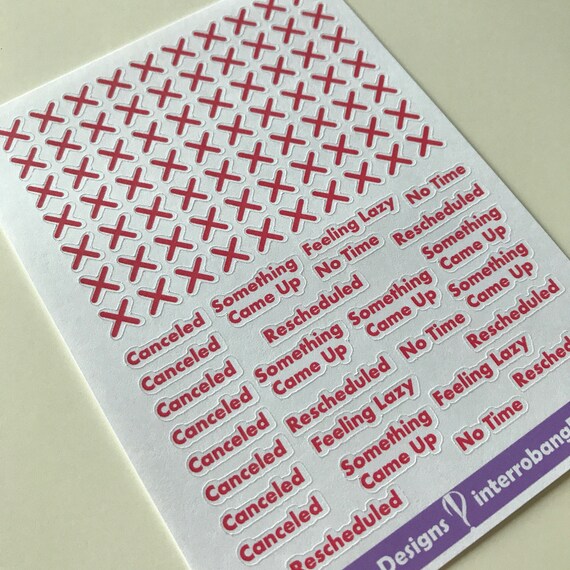 Canceled
Something
Came Up
Feeling Lazy
No Time
Canceled
Rescheduled
No Time
Rescheduled
Canceled
Something
Came Up
Something
Came Up
Something
Came Up
Canceled
Rescheduled
No Time
Something
Came Up
Canceled
Feeling Lazy
Rescheduled
Canceled
Something
Came Up
Feeling Lazy
Canceled
No Time
Reschedu
Canceled
Rescheduled
Designs interrobang